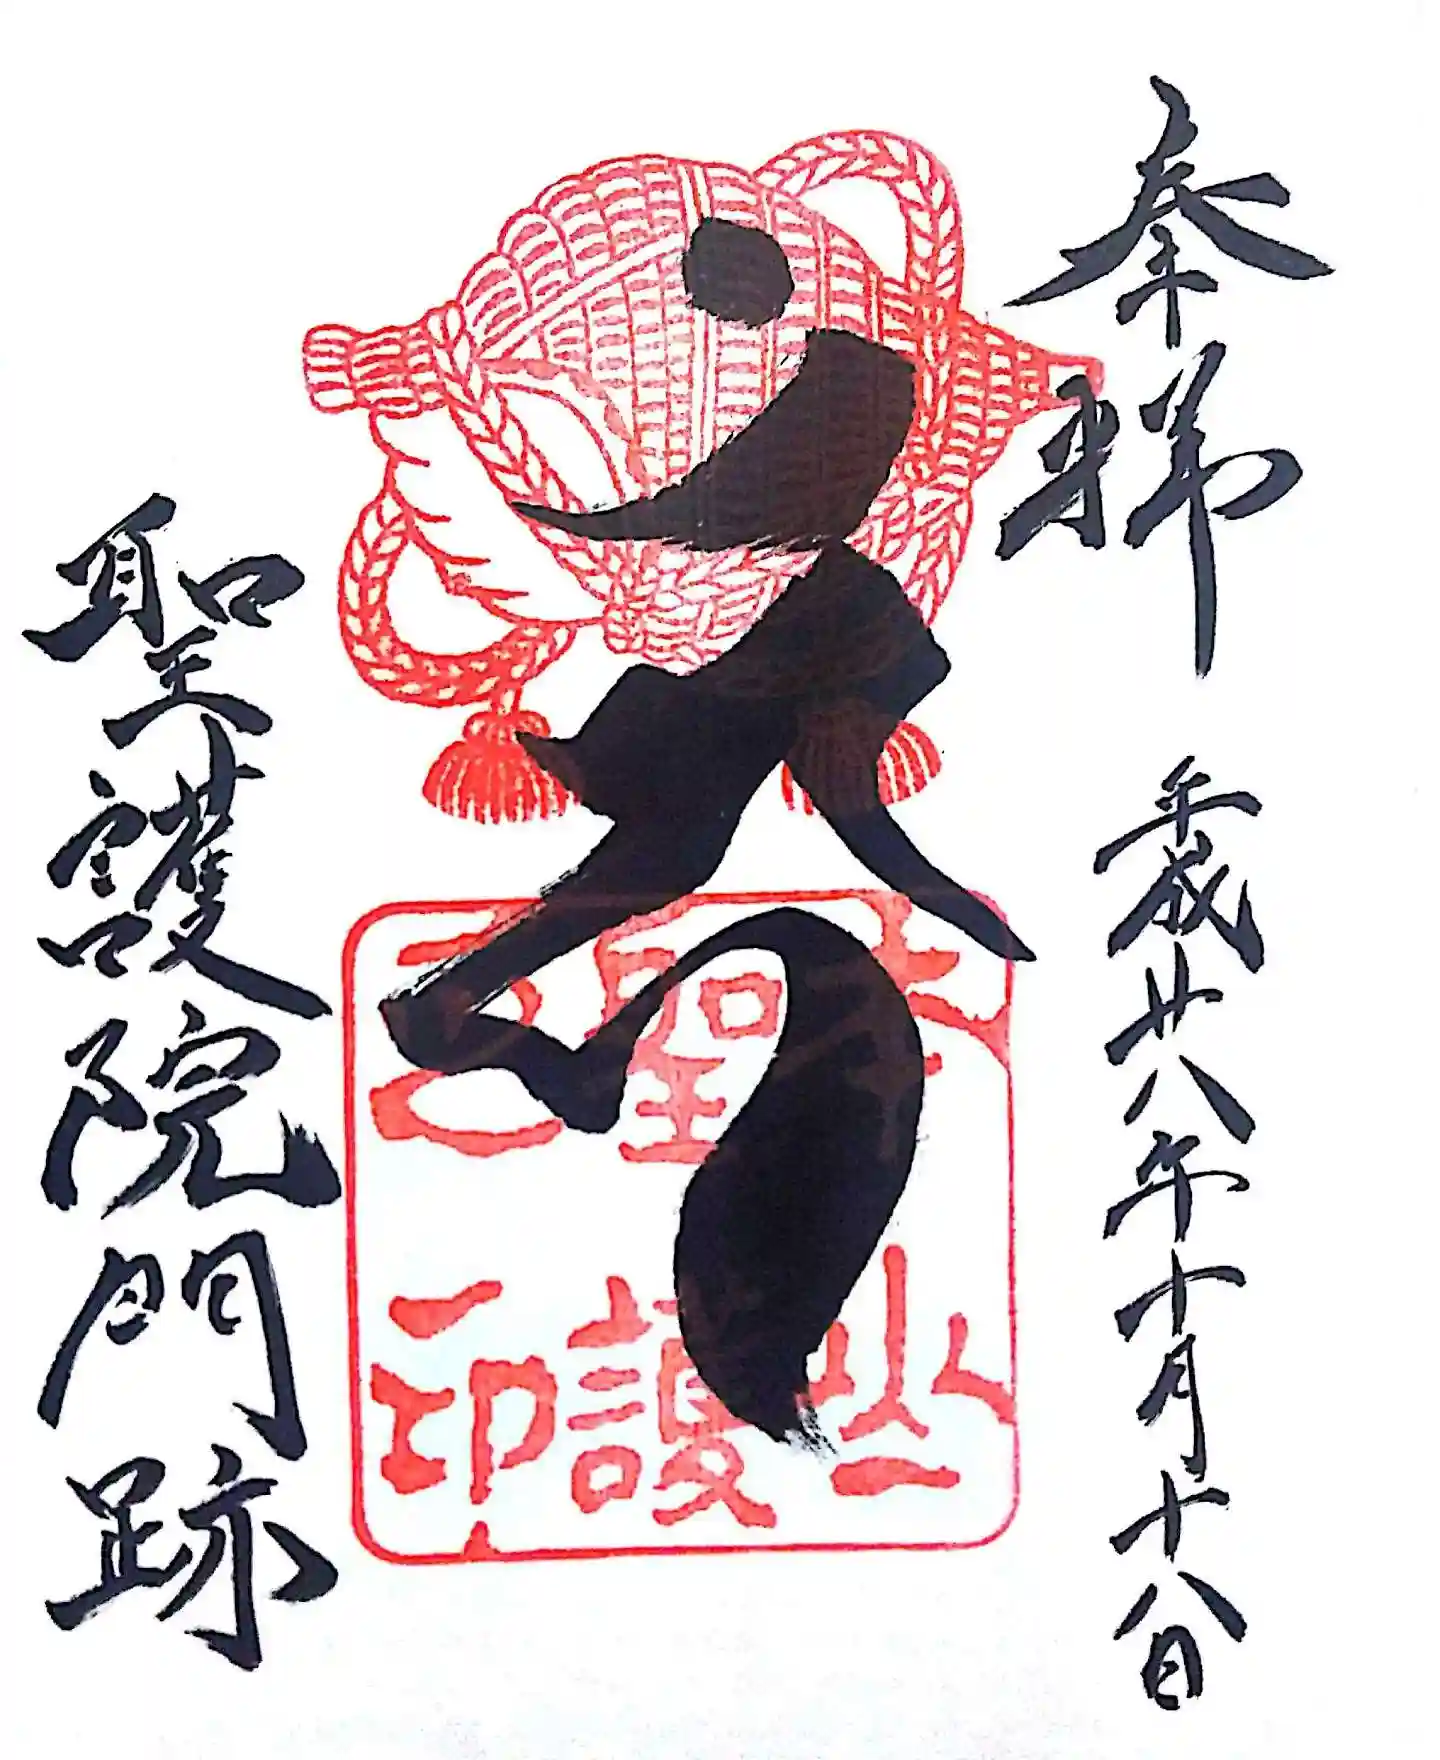 奉拝
平成廿八年十月十八日
本山
聖護
印
聖護院門跡